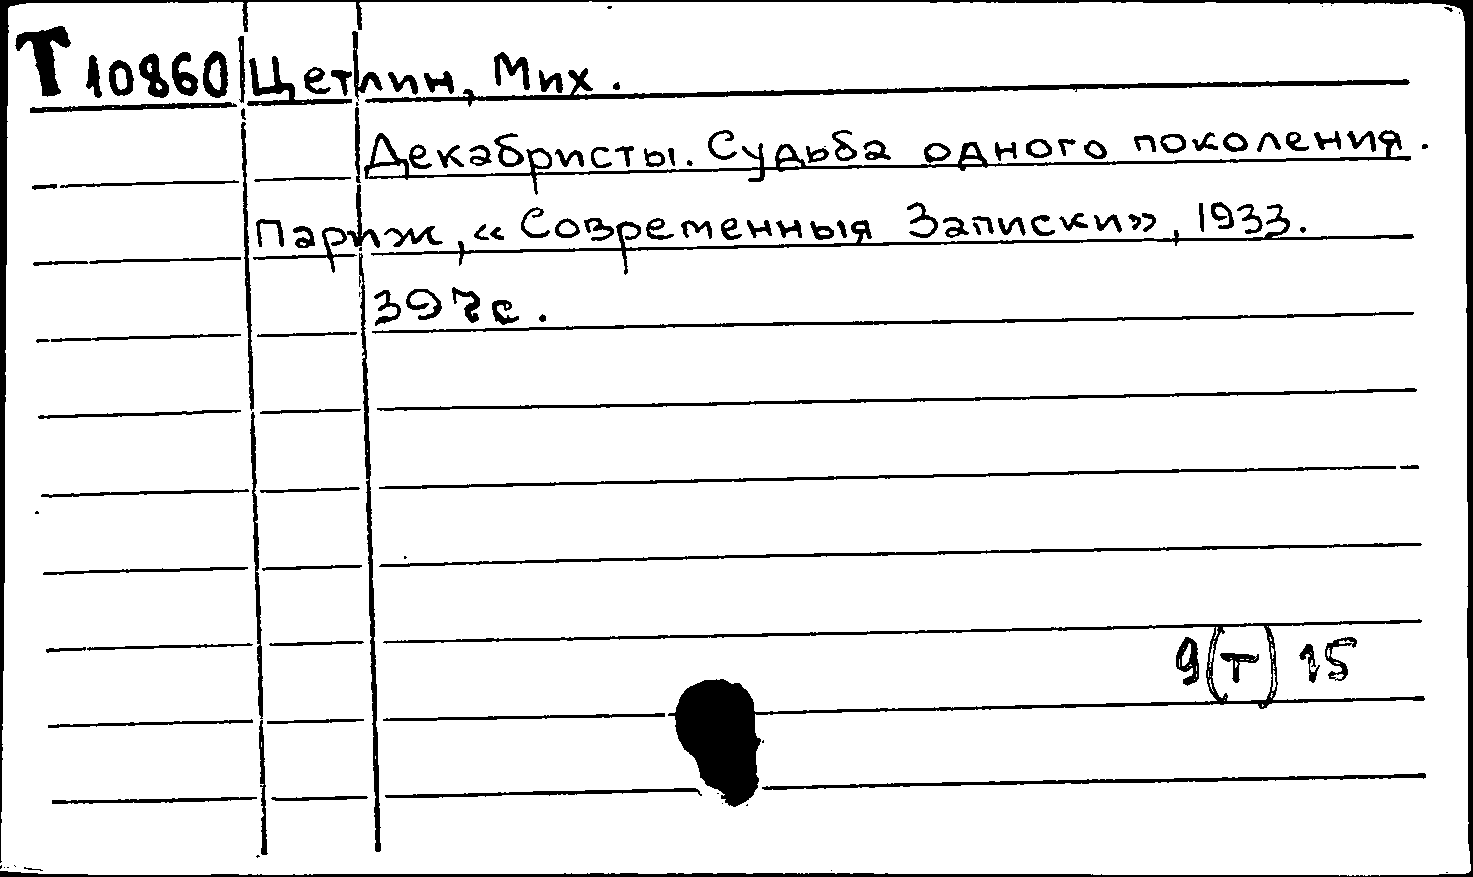 Т 10860 Цетлин, Мих.
Декабристы. Судьба одного поколения.
Париж, «Современныя Записки», 1933.
397 с.
9(Т) 15